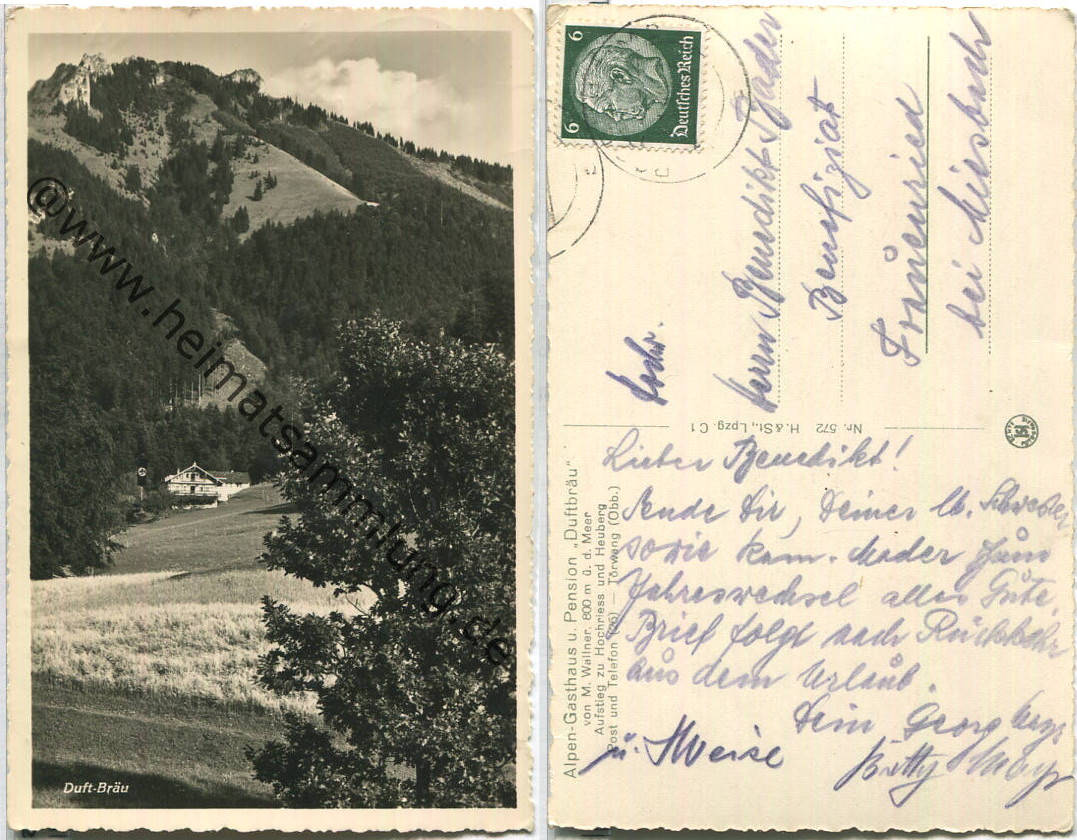 @www.heimatsammlung.de
Duft-Bräu
6 6
Deutsches Reich
Herrn Benedikt Bader
Benefiziat
Frauenried
bei Miesbach
Nr. 572 H. & St., Lpzg. C 1
Alpen-Gasthaus u. Pension „Duftbräu“
von M. Wallner, 800 m ü. d. Meer
Aufstieg zu Hochriess und Heuberg
Post und Telefon — Törwang (Obb.)
Lieber Benedikt!
Sende Dir, Deiner lb. Schwester
sowie zum
Jahreswechsel alles Gute.
Brief folgt nach Rückkehr
aus dem Urlaub.
Dein Georg
u.
Betty